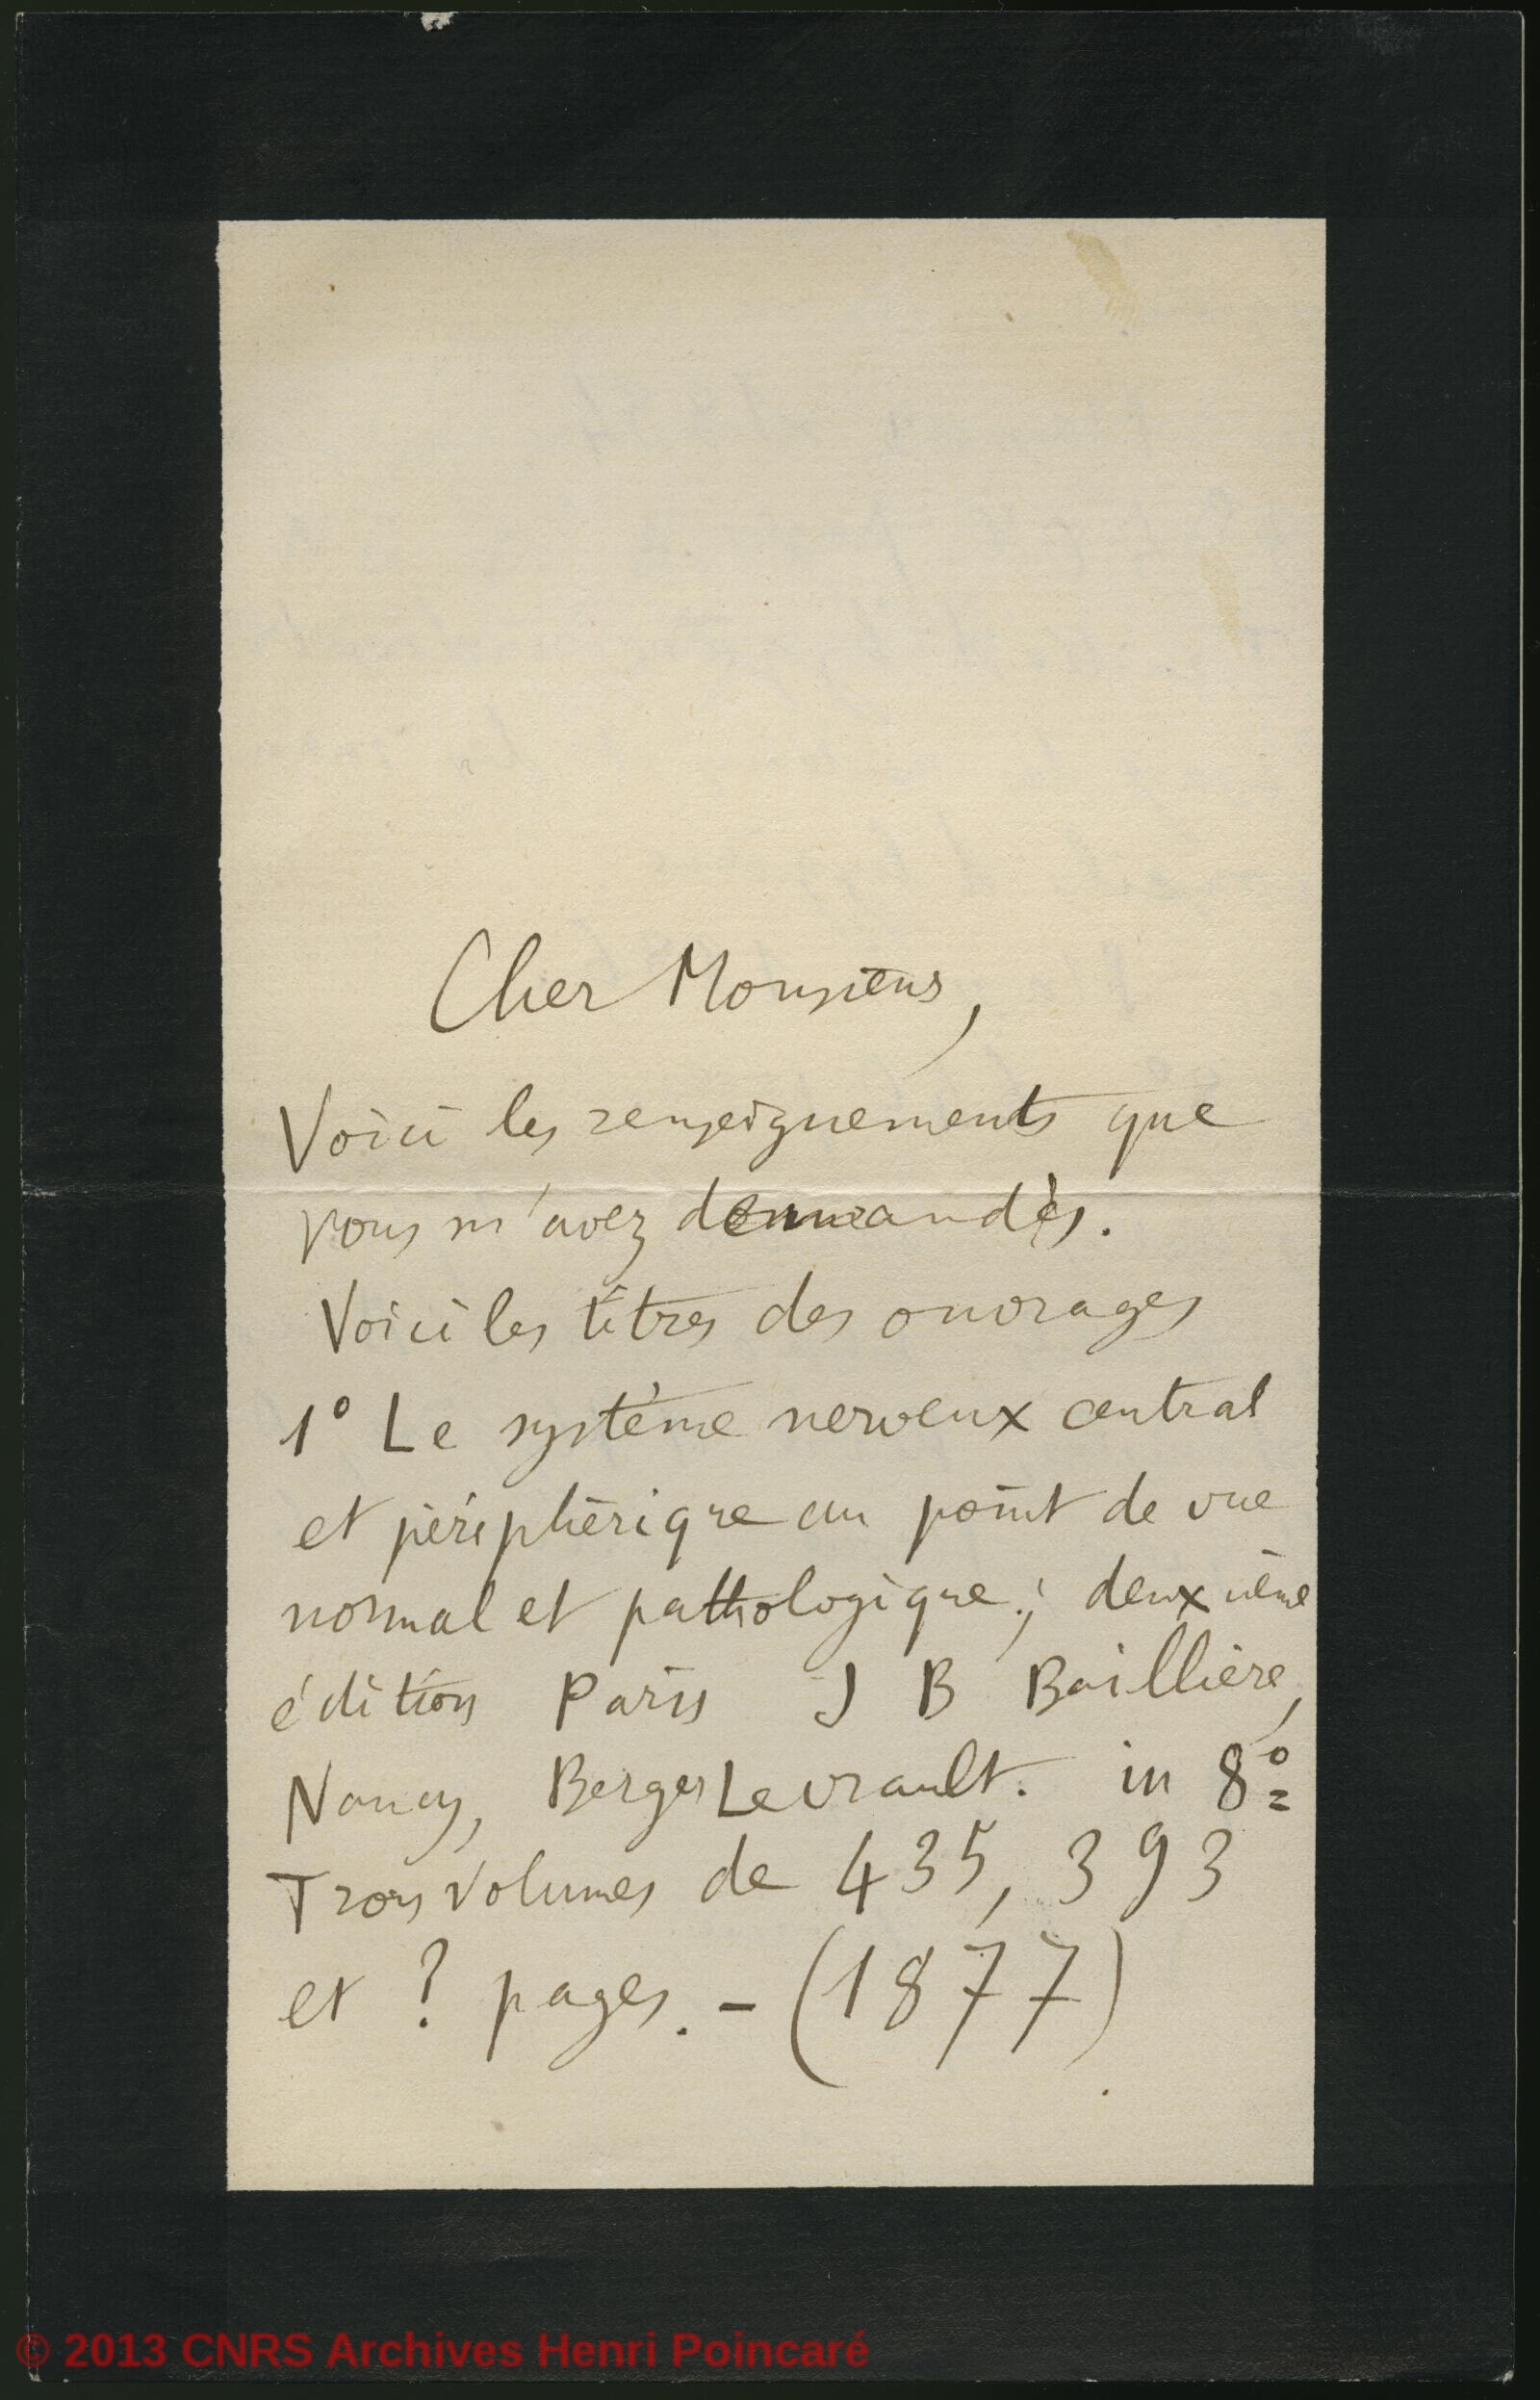 Cher Monsieur,
Voici les renseignements que
vous m'avez demandés.
Voici les titres des ouvrages
1° Le système nerveux central
et périphérique au point de vue
normal et pathologique ; deuxième
édition Paris J B Baillière,
Nancy, Berger Levrault. in 8º
Trois volumes de 435, 393
et ? pages. - (1877)
© 2013 CNRS Archives Henri Poincaré